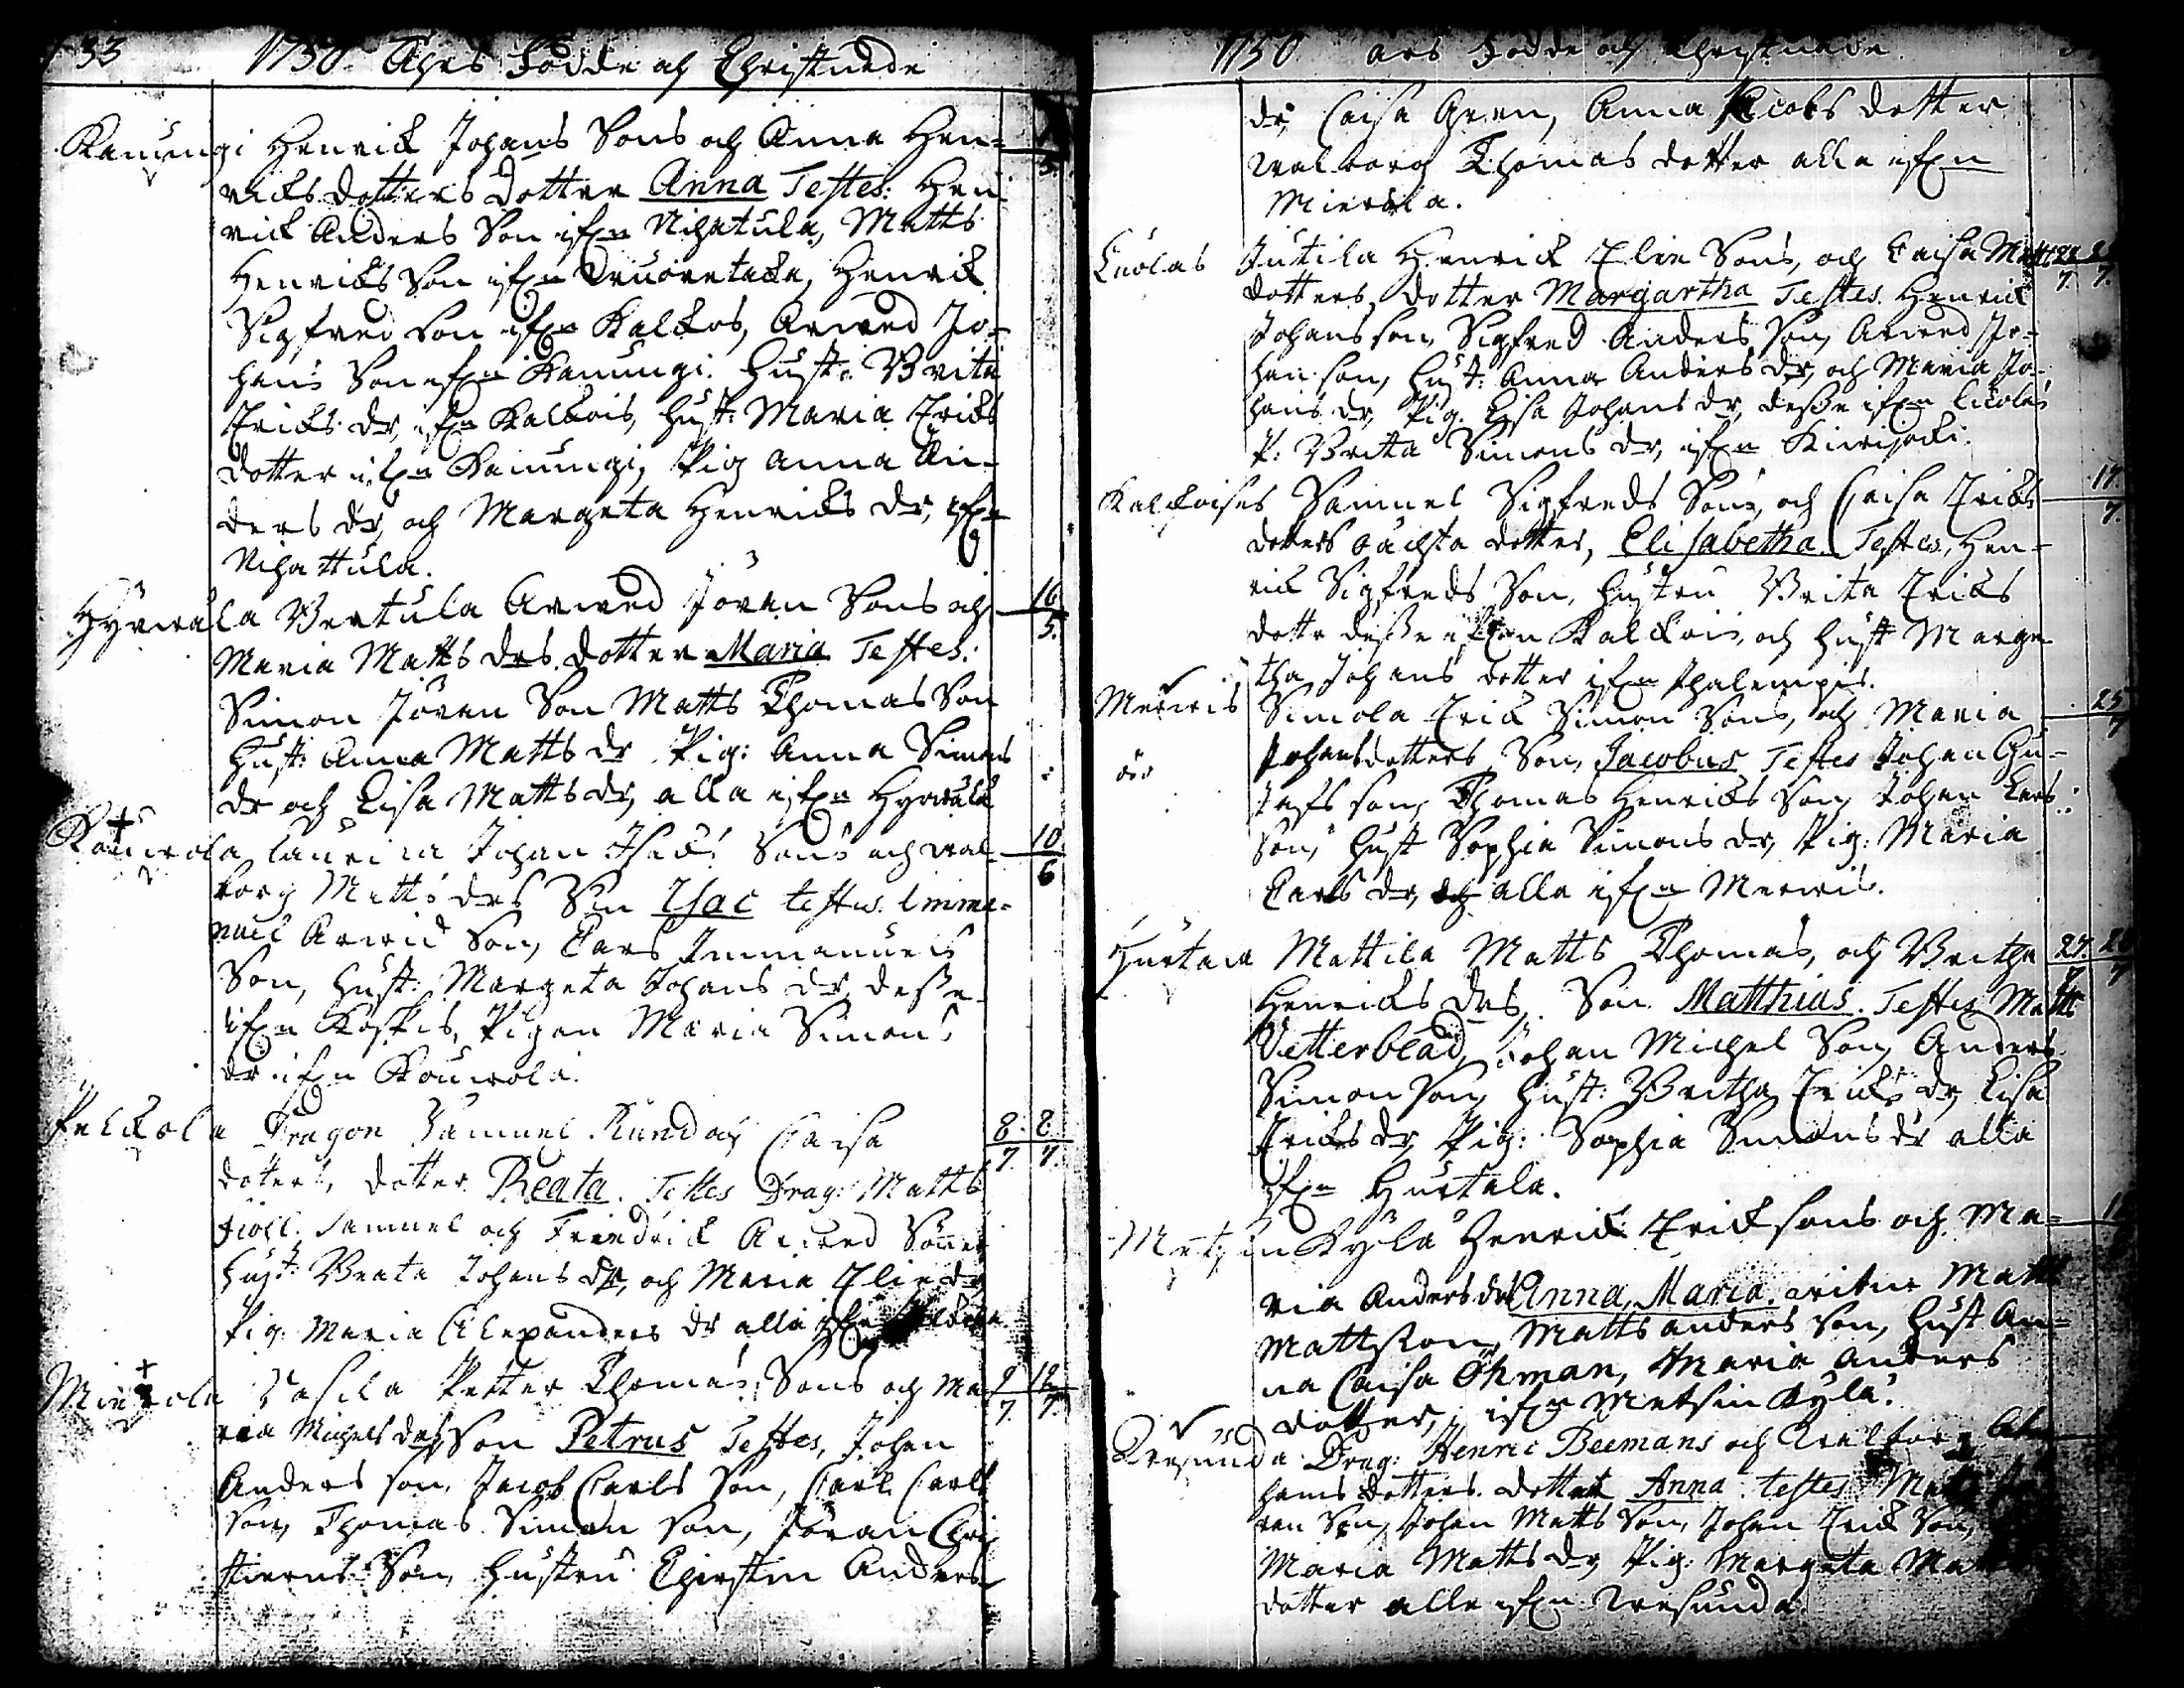 33 1750 Åhrs Födde och Christnade
Kanungi Henrick Johans Sons och Anna Hen=
ricks dotters dotter Anna Testes: Hen
rick Anders Son ifrn Nihatula, Matts
Henricks Son ifrn, Henrick
Sigfred Son ifrn Kalkos, Arwed Jo=
hans Son ifrn Kanungi. Hust: Brita
Ericks dr, ifrn Kalkois, Hust: Maria Ericks
dotter ifrn Kanungi, Pig Anna An=
ders dr, och Margeta Henricks dr, ifrn
Nihattula.
5.
Hyrwälä Bertula Arwed Jöran Sons och 16
5.
Maria Matts drs dotter Maria Testes:
Simon Jöran Son Matts Thomas Son
Hust: Anna Matts dr Pig: Anna Simons
dr och Lisa Matts dr, alla ifrn Hyrwälä
Kouwola Laurila Johan Isacs Sons och Wal= 10
6
borg Matts drs Son Isac testes. Imma=
nuel Arwid Son, Lars Immanuels
Son, Hust: Margeta Johans dr, desse
ifrn Koskis, Pigan Maria Simons
dr ifrn Kouwola.
Pelkola Dragon Samuel Rund och Caisa 8. 8
7. 7.
doter, dotter Beata. Testes Drag: Matts
Samuel och Friedrick Arwed Söner
Hust: Beata Johans dr, och Maria Elie dr
Pig: Maria Alexanders dr alla ifrn
Mierola Pasila Petter Thomas Sons och Ma= 9 12
7. 7.
ria Michels drs, Son Petrus Testes, Johan
Anders son, Jacob Carls Son, Carl Carls
Son, Thomas Simon Son, Jöran Chri
stierns Son, Hustru Chirstin Anders
1750 års Födde och Christnade
dr, Caisa Gren, Anna Jacobs dotter
Walborg Thomas dotter alla ifrn
Mierola.
Leiolas Jutila Henrick Elie Sons, och Caisa Matts 22
7. 7.
dotters, dotter Margartha Testes. Henrick
Johans son, Sigfred Anders Son, Arwed Jo=
han son, Hust: Anna Anders dr, och Maria Jo=
hans dr, Pig. Lisa Johans dr, desse ifrn Leiolas
P: Brita Simons dr, ifrn Kiwijocki.
Kalkoises Samuel Sigfreds Sons, och Caisa Ericks 17.
7.
doters dotter, Elisabetha Testes, Hen=
rick Sigfreds Son, Hustru Brita Ericks
dottr desse ifrn Kalkois, och Hust Marga
tha Johans dotter ifrn Phalempis.
Merwis Simola Erick Simon Sons, och Maria 25
7
Johansdotters Son, Jacobus Testes Johan Gu=
stafs son, Thomas Henricks Son, Johan Lars
Son, Hust Sophia Simons dr, Pig: Maria
Carls dr, alla ifrn Merwis.
Hurtala Mattila Matts Thomas, och Britha 27. 28
7
Henricks drs, Son Matthias. Testes Matts
Vetterblad, Johan Michel Son, Anders
Simon son, Hust: Britha Ericks dr, Lisa
Ericks dr, Pig: Sophia Simons dr alla
ifrn Hurtala.
Metzän Kylä Henrick Erick sons och Ma=
ria Anders drs Anna Maria. Matts
Mattsson, Matts Anders son, Hust An=
na Caisa Öhman, Maria Anders
dotter, ifrn Metsin Kylä.
Wesunda Drag: Henric Beemans och Walborg
hams dotters. dotter Anna testes Matts
ran Son, Johan Matts Son, Johan Erick Son,
Maria Matts dr, Pig: Margeta
dotter alla ifrn Wesunda